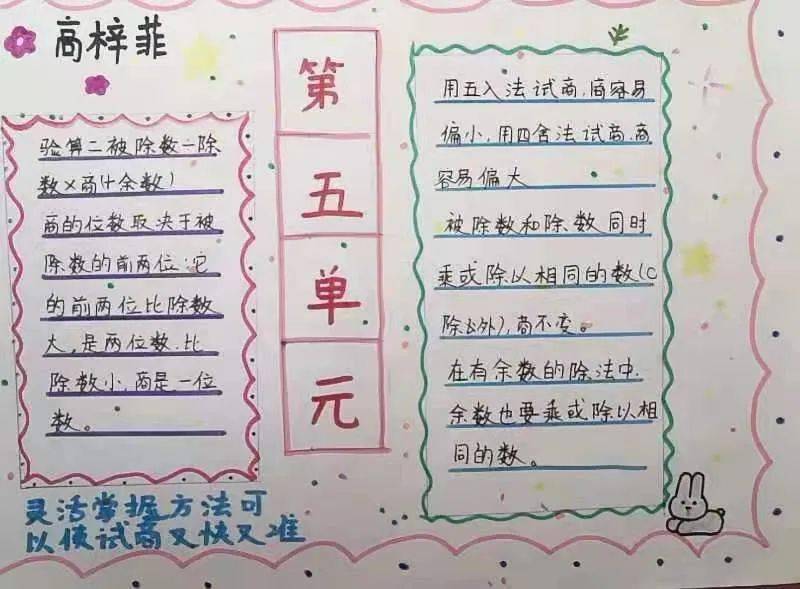 高梓菲
第五单元
验算二被除数一除
数×商(+余数)
商的位数取决于被
除数的前两位:它
的前两位比除数
大,是两位数.比
除数小.商是一位
数。
用五入法试商.商容易
偏小,用四舍法试商.商
容易偏大
被除数和除数同时
乘或除以相同的数(0
除以外),商不变。
在有余数的除法中.
余数也要乘或除以相
同的数。
灵活掌握方法可
以使试商又快又准